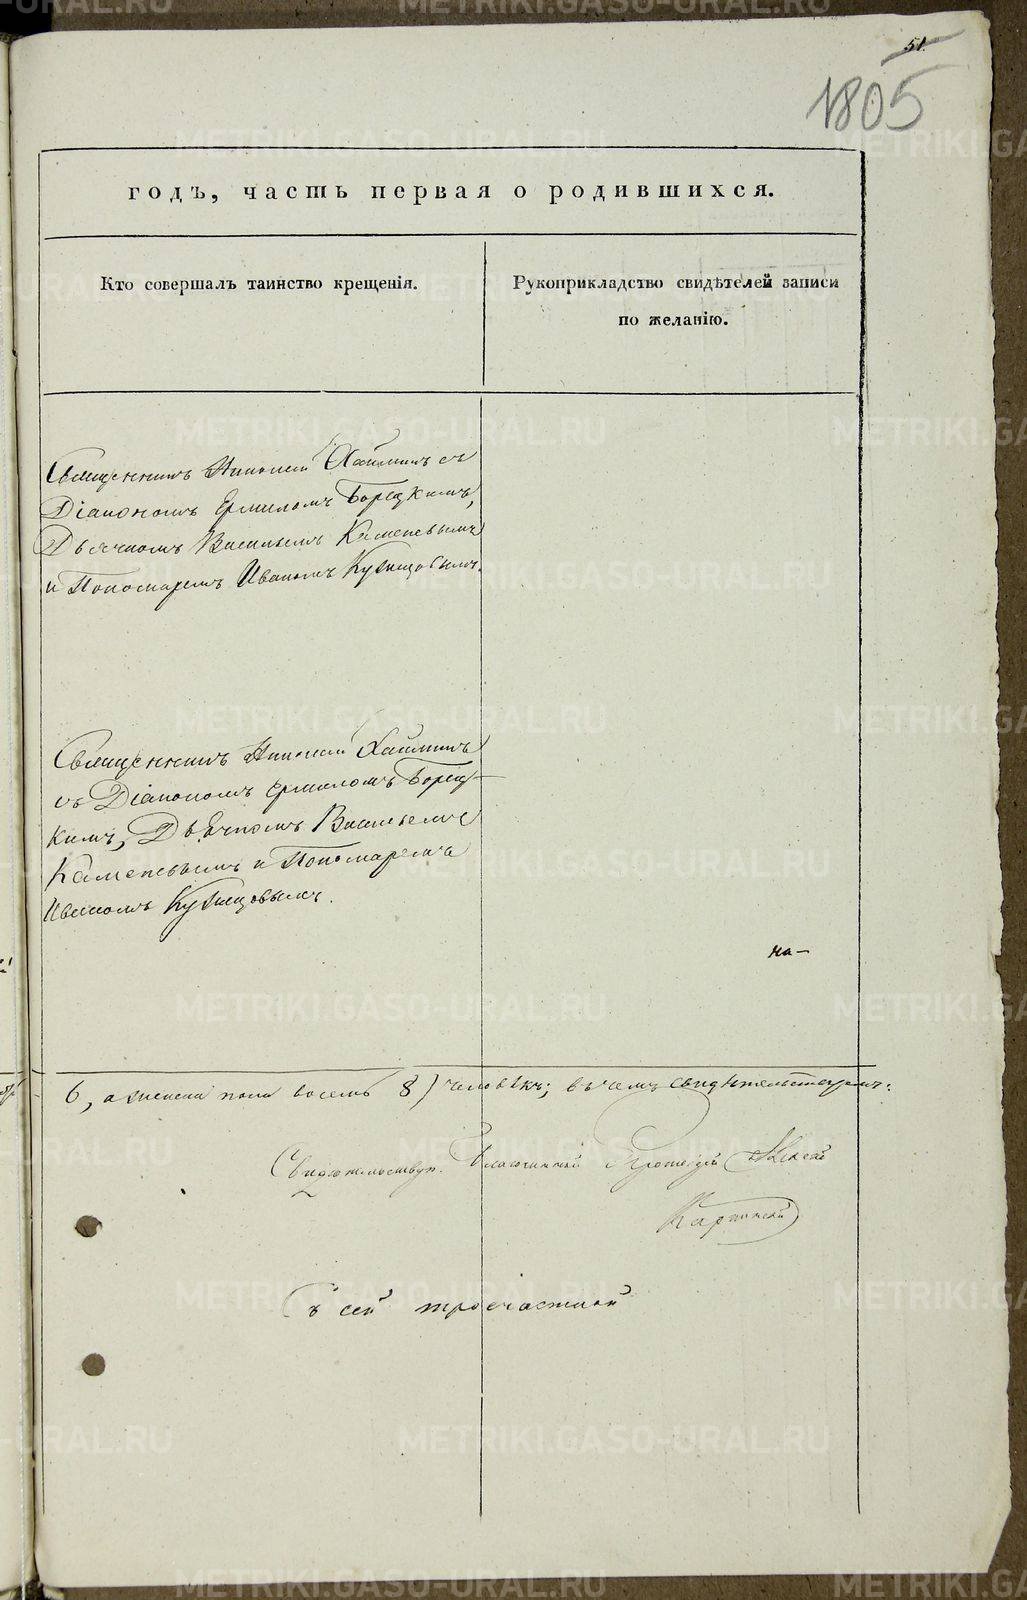 51.
1805
годъ, часть первая о родившихся.
Кто совершалъ таинство крещенія.
Рукоприкладство свидѣтелей записи
по желанію.
Священникъ Хаймимъ съ
Діакономъ Ермиломъ Борецкимъ,
Дьячкомъ Васильемъ Каменевымъ
и Пономаремъ Иваномъ Кузнецовымъ.
Священникъ
съ Діакономъ Ермиломъ Борец-
кимъ, Дьячкомъ Васильемъ
Каменевымъ и Пономаремъ
Иваномъ Кузнецовымъ.
на-
6, а женска пола восемь 8) человѣкъ; въ чемъ свидѣтельствуемъ:
Свидѣтельствуп. Благочинный Протоіерей Алексѣй
Карпинскій
Въ сей троечастной
METRIKI.GASO-URAL.RU